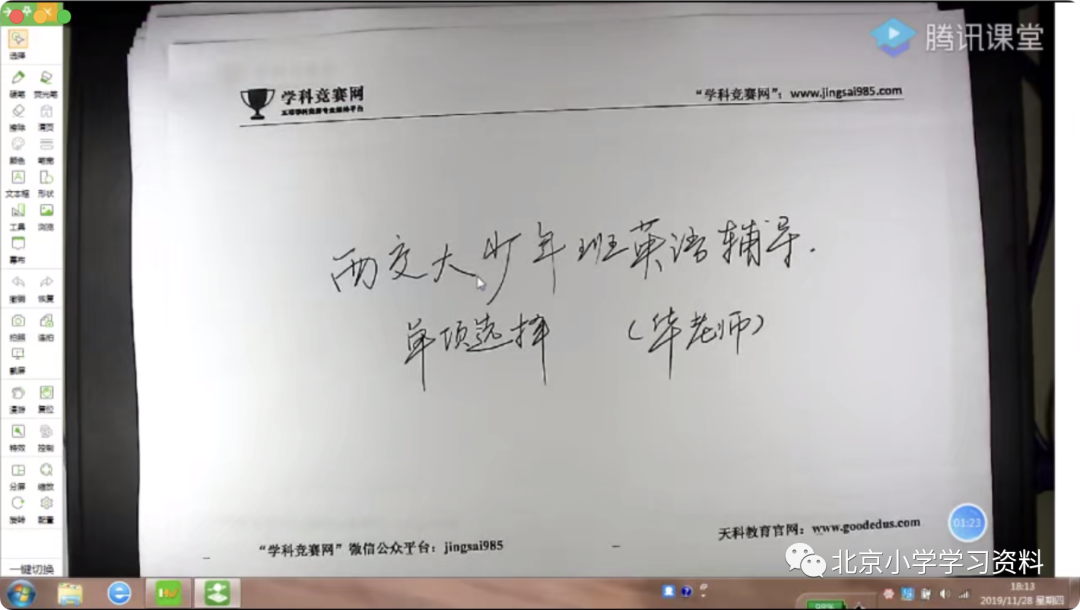 腾讯课堂
学科竞赛网
"学科竞赛网"：www.jingsai985.com
选择
硬笔 荧光笔
擦除 清页
颜色 笔宽
文本框 形状
工具 浏览
幕布
撤销 恢复
拍照 连拍
截屏
漫游 复位
特效 控制
分屏 缩放
旋转 配置
一键切换
西交大少年班英语辅导.
单项选择 （华老师）
01:23
天科教育官网：www.goodedus.com
"学科竞赛网"微信公众平台：jingsai985
北京小学学习资料
18:13
2019/11/28 星期四